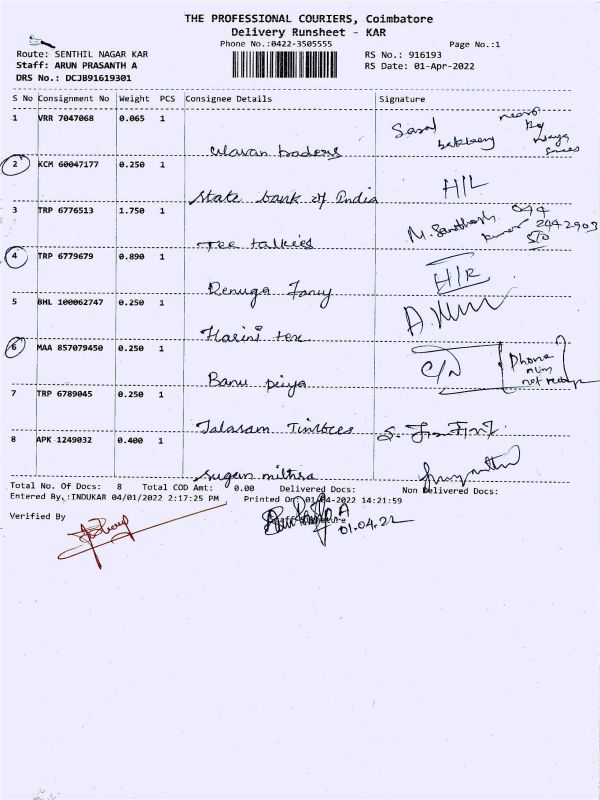 THE PROFESSIONAL COURIERS, Coimbatore
Delivery Runsheet - KAR
Phone No.:0422-3505555
Page No.:1
Route: SENTHIL NAGAR KAR
RS No.: 916193
Staff: ARUN PRASANTH A
RS Date: 01-Apr-2022
DRS No.: DCJB91619301
S No Consignment No Weight PCS Consignee Details Signature
1 VRR 7047068 0.065 1
2 KCM 60047177 0.250 1
State bank of India H/L
3 TRP 6776513 1.750 1
Tee talkies M. Santhosh
044
2442903
4 TRP 6779679 0.890 1
Renuga Fancy
5 BHL 100062747 0.250 1
Harini tex
6 MAA 857079450 0.250 1
Banu priya
C/N
Phone
num
7 TRP 6789045 0.250 1
Jalaram Timbers
8 APK 1249032 0.400 1
Sugan mithra
Total No. Of Docs: 8 Total COD Amt: 0.00 Delivered Docs: Non Delivered Docs:
Entered By.:INDUKAR 04/01/2022 2:17:25 PM Printed On: 01-04-2022 14:21:59
Verified By
01.04.22